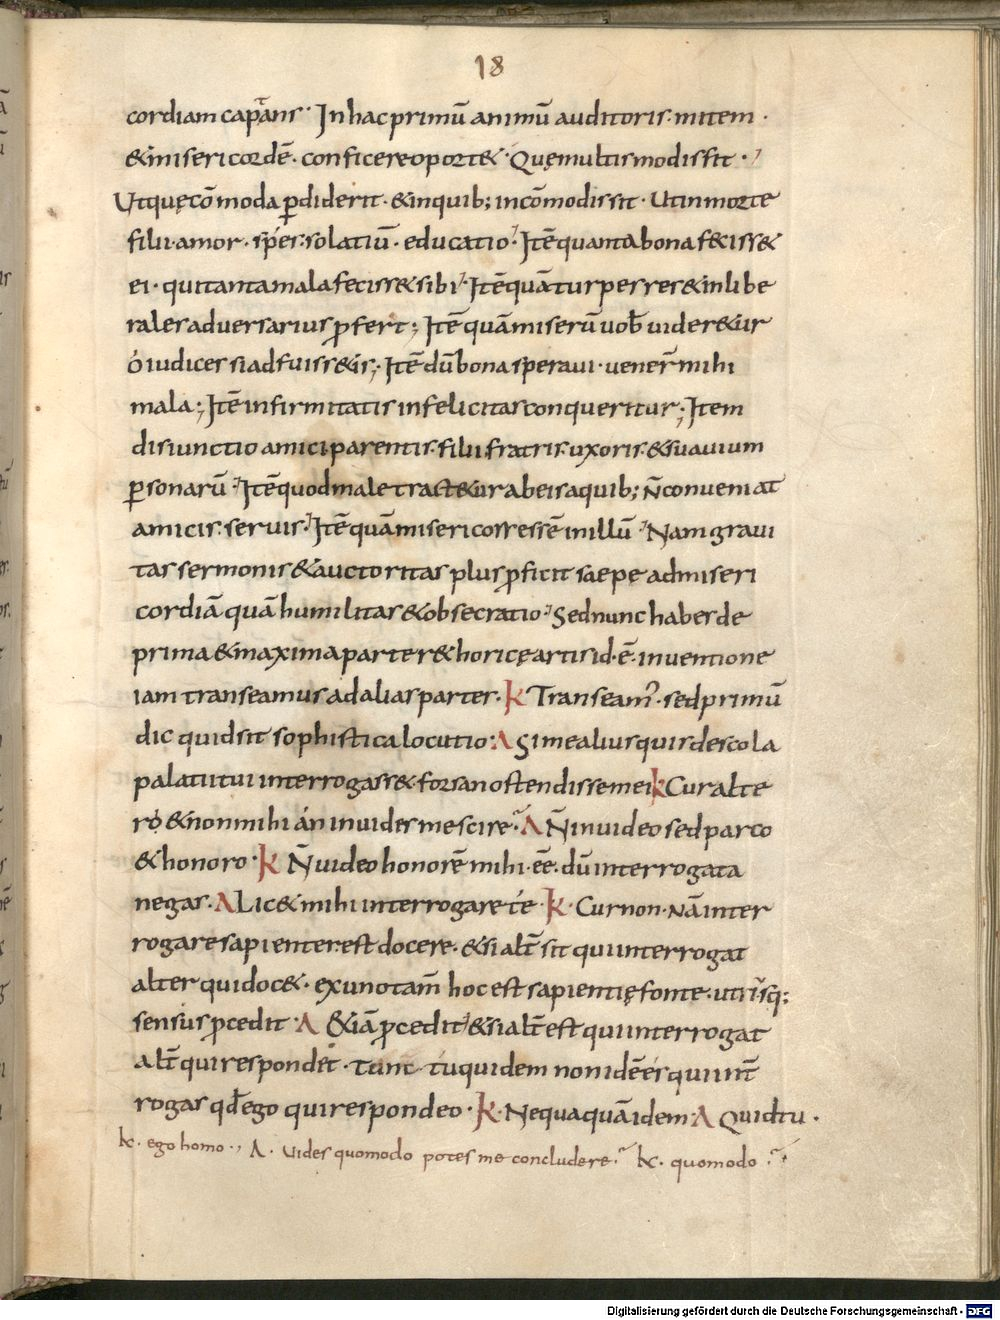 18
cordiam captans. In hac primū animū auditoris. mitem.
& misericordē. conficere oport&. Quę multis modis fit.
Ut quę cōmoda p̱diderit. & in quib; incōmodis sit. Ut in morte
filii. amor. spes. solatiū. educatio. Itē quanta bona feciss&
ei. qui tanta mala feciss& sibi. Itē quā turpes res & inlibe
rales adversarius ꝓfert; Itē quā miserū uob̄ uider&ur
ó iudices si adfuiss&is; Itē dū bona speraui. uener̄ mihi
mala; Itē infirmitatis infelicitas conqueritur; Item
disiunctio amici parentis. filii fratris. uxoris. & suauium
ꝑsonarū. Itē quod male tract&ur ab eis a quib; ñ conueniat
amicis. seruis. Itē quā misericors essē in illū. Nam graui
tas sermonis & auctoritas plus ꝓficit saepe ad miseri
cordiā quā humilitas & obsecratio. Sed nunc habes de
prima & maxima parte r&horicę artis id. ē. inuentione
iam transeamus ad alias partes. k Transeam᾽. sed primū
dic quid sit sophistica locutio. Λ Si me alius quis de scola
palatii tui interrogass&. forsan ostendissem ei k Cur alte
ro & non mihi án inuides me scire. Λ Ñ inuideo sed parco
& honoro. k Ñ uideo honorē mihi. ēē. dū interrogata
negas. Λ Lic& mihi interrogare té. k. Cur non. nā inter
rogare sapienter. est docere. & si alt̄ sit qui interrogat
alter qui doc&. ex uno tam̄ hoc est sapientię fonte. utrisq;
sensus ꝓcedit. Λ &iā ꝓcedit & si alt̄ est qui interrogat
alt̄ qui respondet. Tunc tu quidem non idē és qui int̄
rogas qd̄ ego qui respondeo. k. Nequaquā idem. Λ Quid tu.
k. ego homo., Λ. Uides quomodo potes me concludere. k. quomodo.
Digitalisierung gefördert durch die Deutsche Forschungsgemeinschaft - DFG